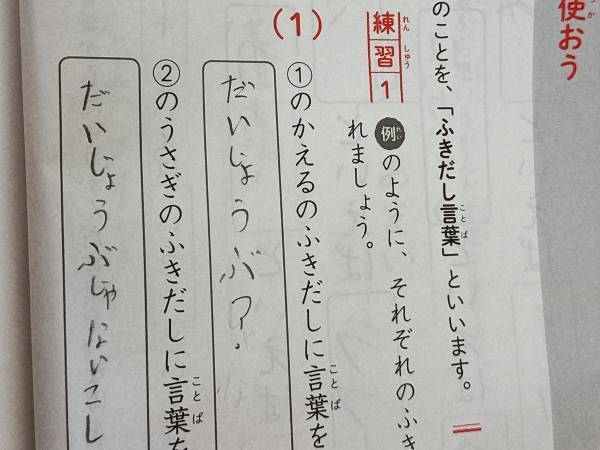 使おう
のことを、「ふきだし言葉」といいます。
練習1
例のように、それぞれのふき
れましょう。
(1)
①のかえるのふきだしに言葉を
だいじょうぶ?
②のうさぎのふきだしに言葉を
だいじょうぶじゃないこし